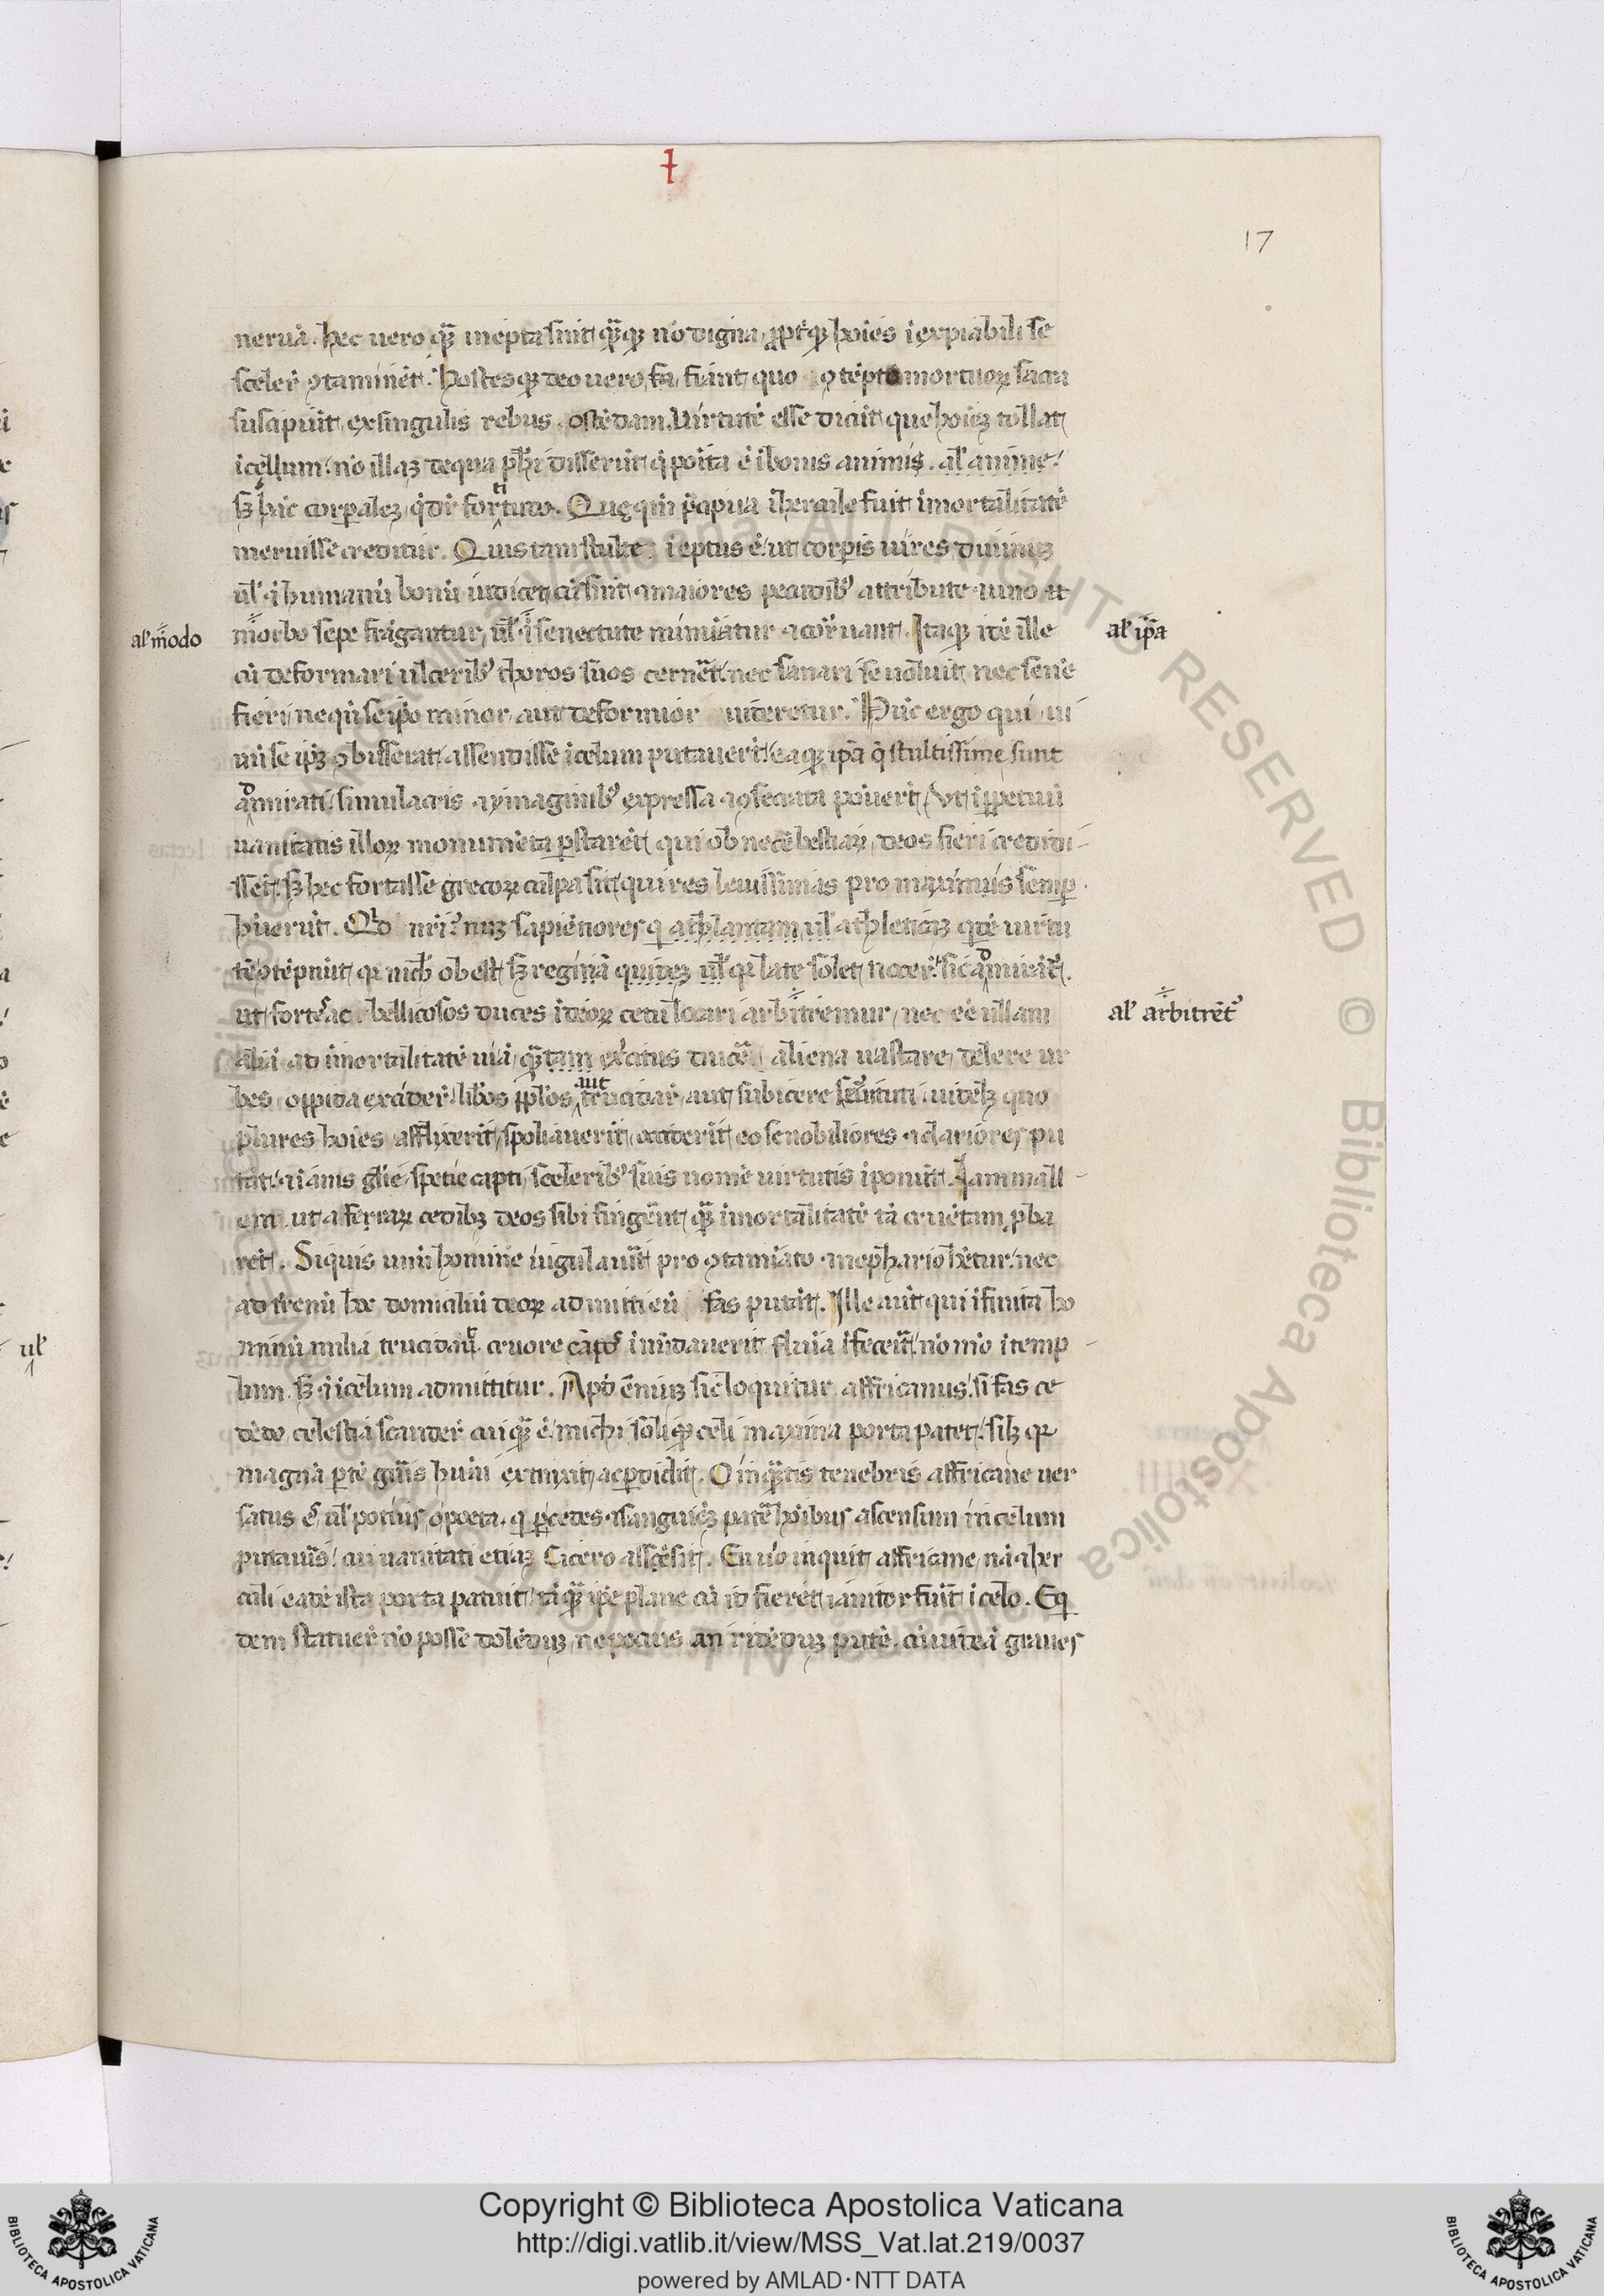 7
17
neruā. hec uero qm̄ inepta sint q̄ꝫqꝫ nō digna ꝓpt̓qꝫ hoīes īexpiabili se
sceler̄ ꝯtaminēt. hostesqꝫ deo uero, fa, fuint quo ꝯtēpto mortuoꝝ sacra
suscipiūt, ex singulis rebus ostēdam. Uirtutē esse dicūt que hoīeꝫ tollat
ī cęllum. nō illaꝫ de qua ph̄i disserūt q̄ poīta ē ī bonis animis. al̓ anime.
sꝫ hāc corꝑaleꝫ q̄ dr̄ fortitudo. Quę qm̄ p̄cipua ī hercule fuit īmortalitatē
meruisse creditur. Quis tam stulte īeptus ē. ut corꝑis uires diuinuꝫ
ul̓ ⁊ humanū bonū iudicet, cū sint ⁊ maiores pecudibꝰ attribute ⁊ uno
al̓ m̄odo
morbo sepe frāgantur, ul̓ ī senectute minuātur ⁊ cōrruant. Itaqꝫ idē ille
al̓ ip̄a
cū deformari ulceribꝰ thoros suos cerneret. nec sanari se uoluit, nec senē
fieri, ne q̄n se ip̄o minor, aut deformior uideretur. Hūc ergo qui ui
uū se ip̄ꝫ ꝯbusserat, assendisse ī celum putauerūt, eaqꝫ ip̄a q̄ stultissime sunt
admirati, simulacris ⁊ ymaginibꝰ expressa ⁊ ꝯsecrata posuerūt, ut īꝑpetuū
uanitatis illoꝝ monumēta ꝑstarēt, qui ob necē bestiaꝝ deos fieri credidi-
ssēt, sꝫ hec fortasse grecoꝝ culpa sit, qui res leuissimas pro maximis semꝑ
hūerūt. Qd nr̄i. nūꝫ sapiētiores q athlantam ul̓ athleticaꝫ qdē uirtu
tē ꝯtēpnūt, qꝛ nichil obest, sꝫ regiam quideꝫ ul̓ qꝛ late solet nocere, sic admirāt̄.
ut forteſ ac bellicosos duces ī deoꝝ cetu locari arbitremur, nec eē ullam
al̓ arbitrēt̄
aliā ad īmortalitatē uiā, q̄ꝫ tam exercitus ducē, aliena uastare, delere ur
bes oppida exscīder̄, lib̄os ppl̓os aut trucidar̄, aut subicere seruituti. uideꝫ quo
plures hoīes afflixerīt, spoliauerīt, occiderīt, eo se nobiliores ⁊ clariores pu
tāt. ⁊ īanis gl̄ie spetie capti, sceleribꝰ suis nomē uirtutis īponūt. Iam mall-
em ut a feraꝝ cedibꝫ deos sibi fingerēt, q̄ꝫ īmortalitatē tā cruētam ꝓba
rēt. Siquis unū hominē iugulauit pro ꝯtamīato ⁊ nephario hētur. nec
ad t̄renū hoc domiciliū deoꝝ admitti eū fas putāt. Ille aūt qui īfinita ho
minū milia trucidauit, cruore cāpos īūdauerit fluīa īfecerit. nō mō ī temp-
lum. sꝫ ⁊ ī celum admittitur. Apd̄ ēniuꝫ sic loquitur affricanus. si fas ce
dēdo celestia scandere cuiqꝫ ē. michi soli celi maxima porta patet. sꝫ qꝛ
magnā partē gn̄is hūani extinxit, ac perdidit. O in qꝫtis tenebris affricane uer
satus es, ul̓ potius, o poeta, qui per cedes ⁊ sanguineꝫ patē hoībus ascensum in celum
putaueris. cui uanitati etiaꝫ Cicero assēsit. En uo inquit affricane nā ⁊ her
culi eadē ista porta patuit, tāqꝫ ipse plane cū id fieret, ianitor fuerit ī celo. Eq
dem statuer̄ nō posse dolēduꝫ ne pocius an ridēduꝫ putē. cū uideā graues
ul̓
Copyright © Biblioteca Apostolica Vaticana
http://digi.vatlib.it/view/MSS_Vat.lat.219/0037
powered by AMLAD·NTT DATA
BIBLIOTECA APOSTOLICA VATICANA
BIBLIOTECA APOSTOLICA VATICANA